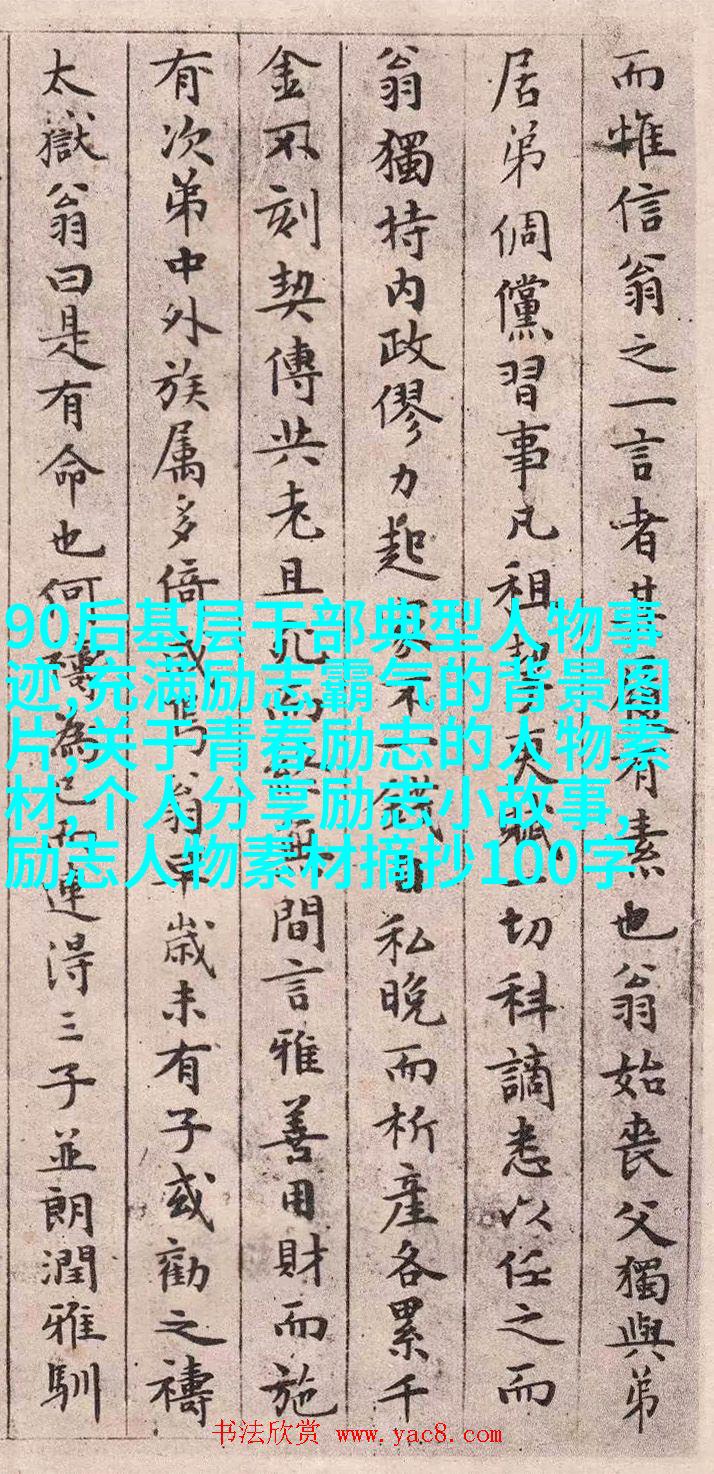 而惟信翁之一言者其有素也翁始喪父獨與弟
居弟倜儻習事凡租契吏一切科謫悉以任之而
翁獨持内政僇力起家不一錢自私晚而析產各累千
金不刻契傳共老且死而無間言雅善用財而施
有次弟中外族属多倚成焉翁早歳未有子或勸之禱
太嶽翁曰是有命也何禱為已而連得三子並朗潤雅馴
90后基层干部典型人物事
迹,充满励志霸气的背景图
片,关于青春励志的人物素
材,个人分享励志小故事,
励志人物素材摘抄100字
书法欣赏 www.yac8.com